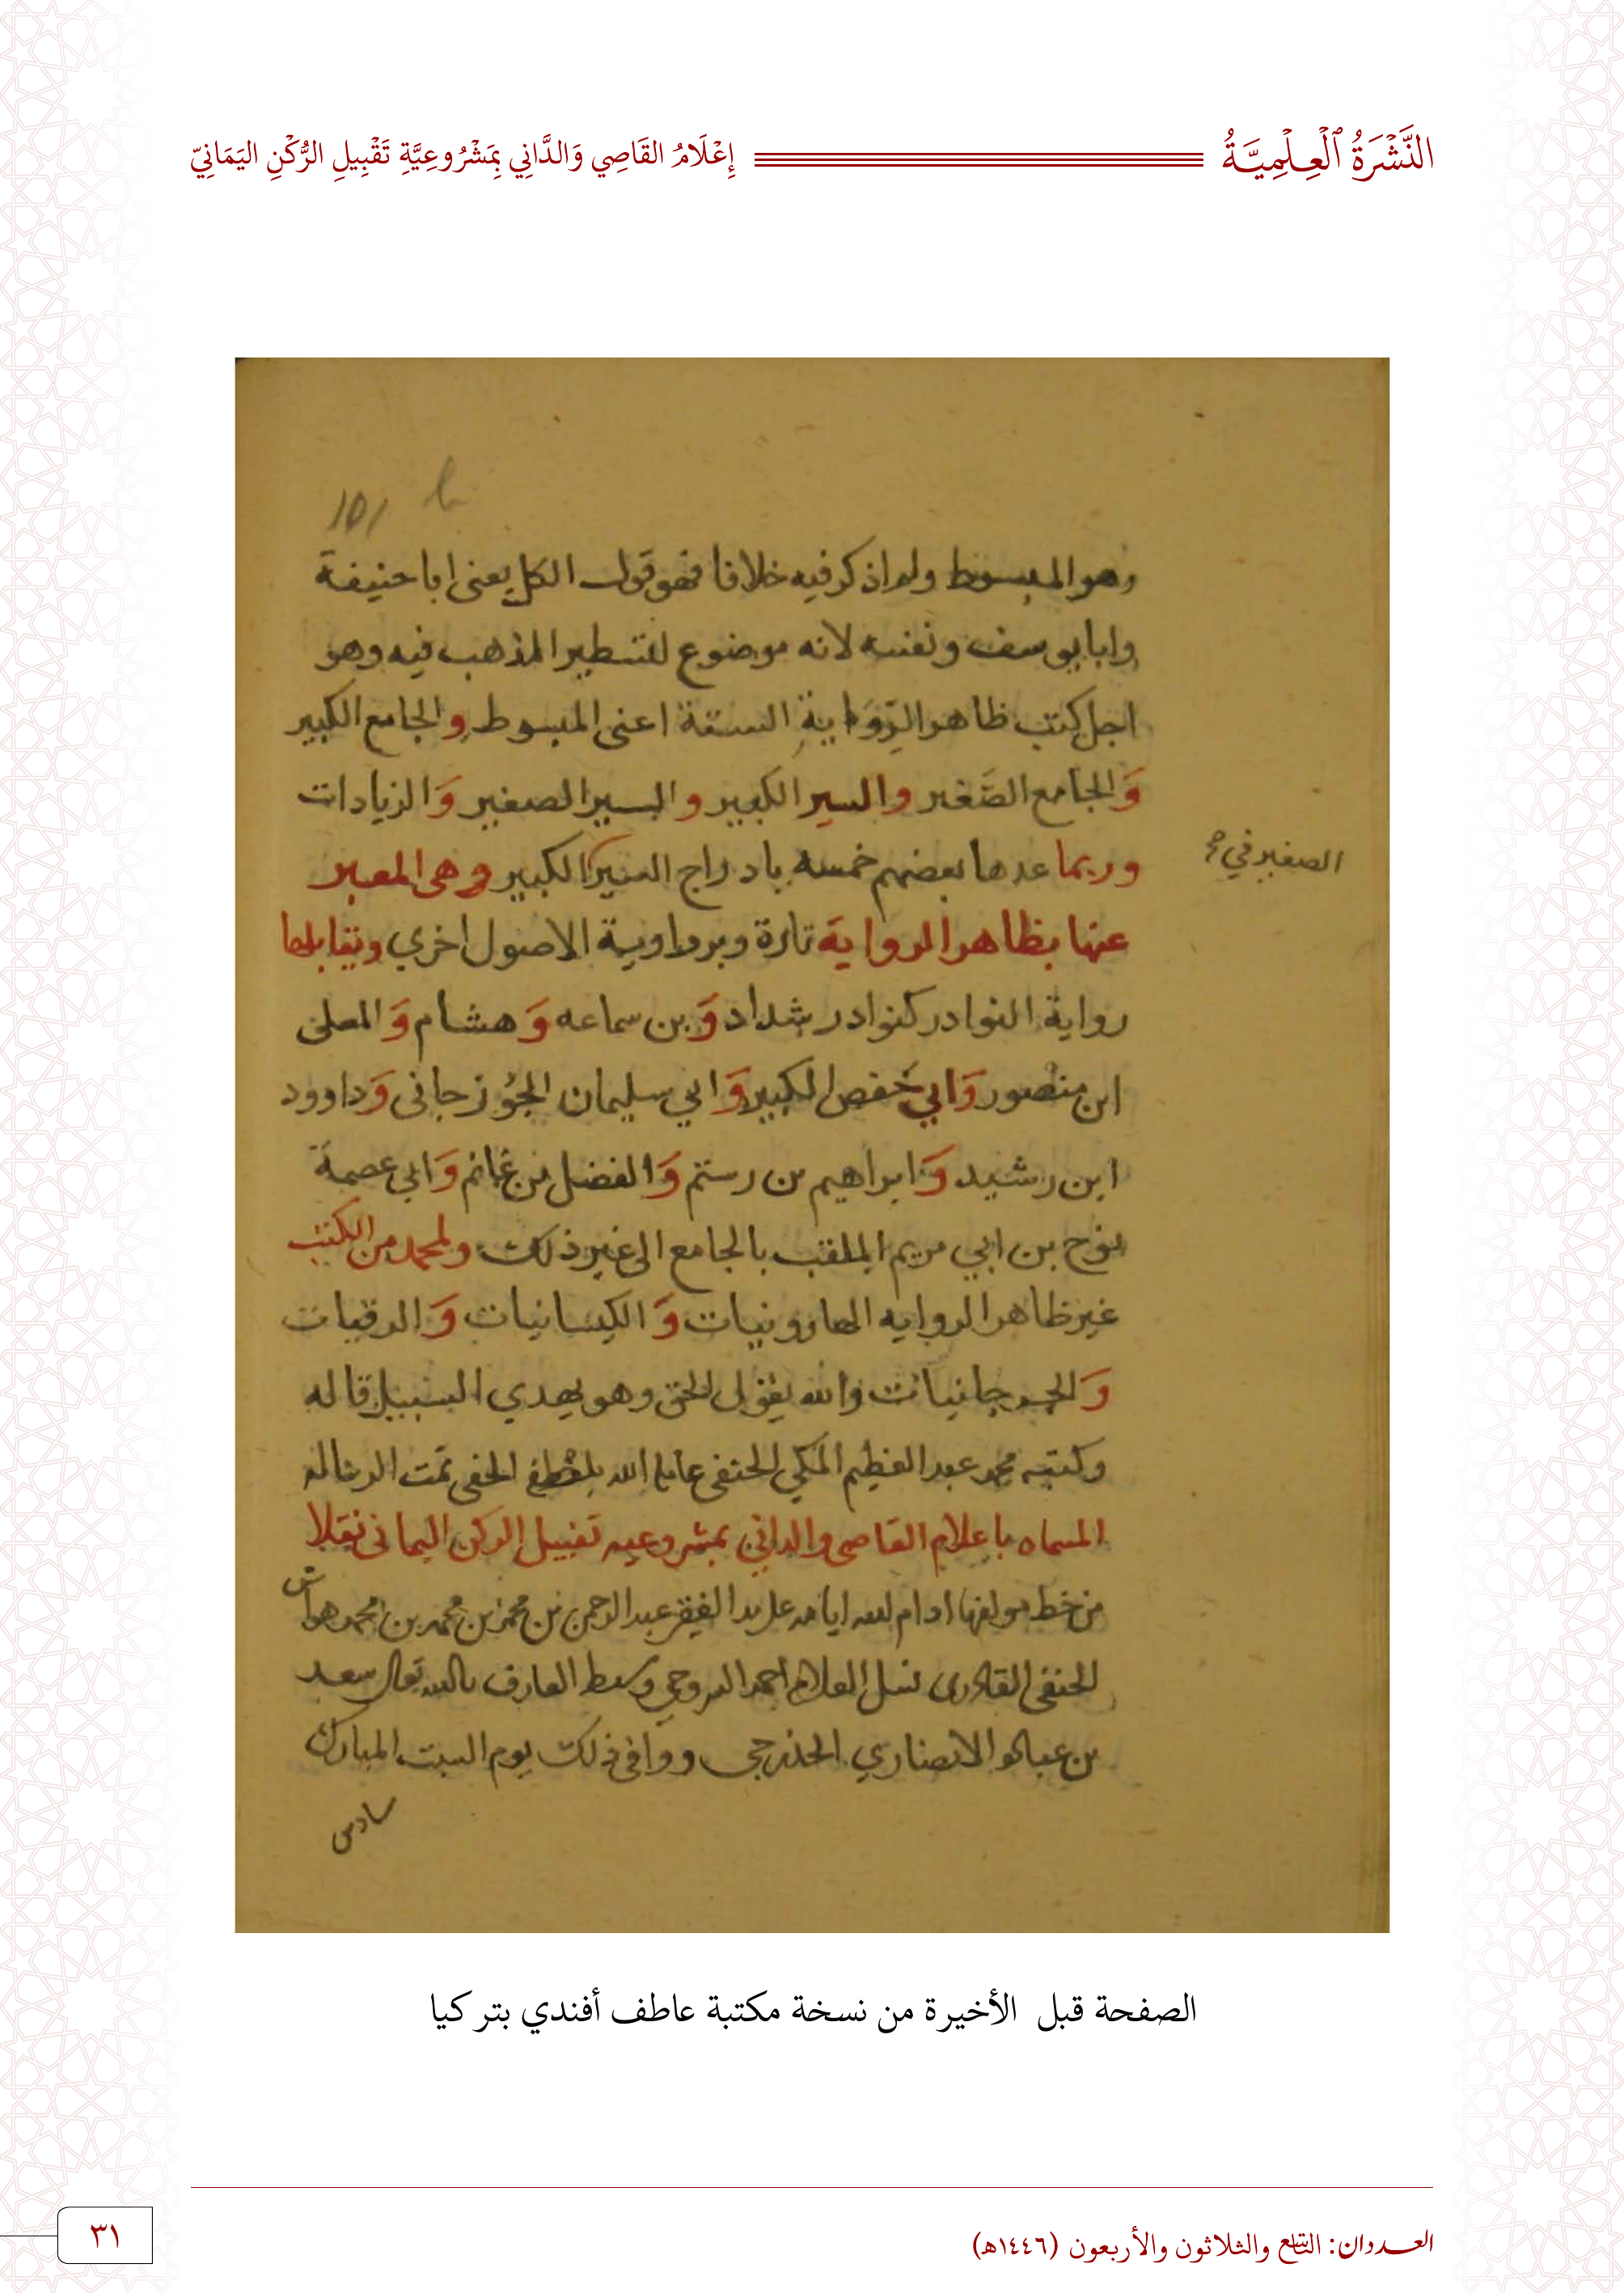 النَّشْرَةُ ٱلْعِلْمِيَّةُ
إِعْلَامُ القَاصِي وَالدَّانِي بِمَشْرُوعِيَّةِ تَقْبِيلِ الرُّكْنِ اليَمَانِيّ
١٥١
وهو المبسوط ولم اذكر فيه خلافا فهو قول الكل يعنى ابا حنيفة
وابا يوسف ونفسه لانه موضوع لتسطير المذهب فيه وهو
اجل كتب ظاهر الرِّوَاية الستة اعنى المبسوط والجامع الكبير
وَالجامع الصَّغير والسير الكبير والسير الصغير وَالزيادات
وربما عدها بعضهم خمسه بادراج السير الكبير وهى المعبر
الصغير في
عنها بظاهر الرواية تارة وبرواية الاصول اخري وتقابلها
رواية النوادر كنوادر شداد وَبن سماعه وَهشام وَالمعلى
ابن منصور وَابي حَفص الكبير وَابي سليمان الجُوزجانى وَداوود
ابن رشيد وَابراهيم بن رستم وَالفضل بن غانم وَابي عصمة
نوح بن ابي مريم الملقب بالجامع الى غير ذلك ولمحمد من الكتب
غير ظاهر الروايه الهارونيات وَالكيسانيات وَالرقيات
وَالجرجانيات والله يقول الحق وهو يهدي السبيل قاله
وكتبه محمد عبد العظيم المكي الحنفى عامله الله بلطفه الخفى تمت الرساله
المسماه باعلام القاصى والداني بمشروعيه تقبيل الركن اليمانى نقلا
من خط مولفها ادام الله ايامه على يد الفقير عبد الرحمن بن محمد بن محمد بن محمد هواش
الحنفى القادرى نسل العلام احمد السروجي وسبط العارف بالله تعالى سعد
بن عباده الانصاري الخزرجى ووافق ذلك يوم السبت المبارك
سادس
الصفحة قبل الأخيرة من نسخة مكتبة عاطف أفندي بتركيا
العددان: التاسع والثلاثون والأربعون (١٤٤٦هـ)
٣١